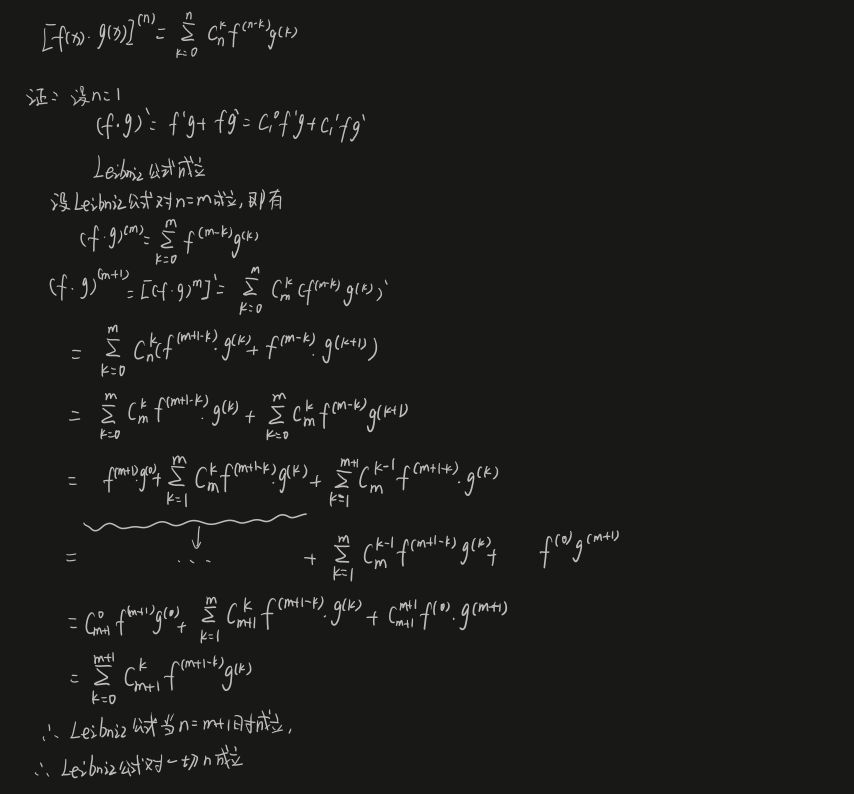 [f(x)·g(x)]^(n) = Σ_{k=0}^{n} C_n^k f^(n-k) g^(k)
证: 设n=1
(f·g)' = f'g + fg' = C_1^0 f'g + C_1^1 fg'
Leibniz公式成立
设Leibniz公式对n=m成立, 即有
(f·g)^(m) = Σ_{k=0}^{m} f^(m-k) g^(k)
(f·g)^(m+1) = [(f·g)^m]' = Σ_{k=0}^{m} C_m^k (f^(m-k) g^(k))'
= Σ_{k=0}^{m} C_n^k (f^(m+1-k)·g^(k) + f^(m-k)·g^(k+1))
= Σ_{k=0}^{m} C_m^k f^(m+1-k)·g^(k) + Σ_{k=0}^{m} C_m^k f^(m-k) g^(k+1)
= f^(m+1)·g^(0) + Σ_{k=1}^{m} C_m^k f^(m+1-k)·g^(k) + Σ_{k=1}^{m+1} C_m^{k-1} f^(m+1-k)·g^(k)
= ↓ ... + Σ_{k=1}^{m} C_m^{k-1} f^(m+1-k) g^(k) + f^(0) g^(m+1)
= C_{m+1}^0 f^(m+1) g^(0) + Σ_{k=1}^{m} C_{m+1}^k f^(m+1-k)·g^(k) + C_{m+1}^{m+1} f^(0)·g^(m+1)
= Σ_{k=0}^{m+1} C_{m+1}^k f^(m+1-k) g^(k)
∴ Leibniz公式当n=m+1时成立,
∴ Leibniz公式对一切n成立